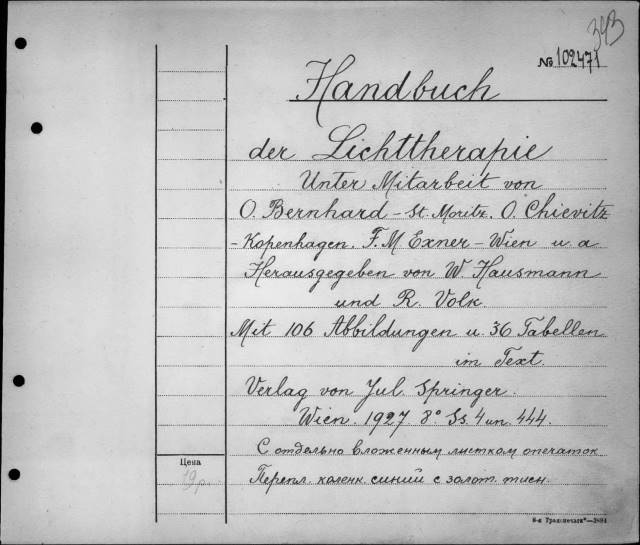 343
№ 102471
Handbuch
der Lichttherapie
Unter Mitarbeit von
O. Bernhard – St. Moritz. O. Chievitz
- Kopenhagen. F. M Exner – Wien u. a
Herausgegeben von W. Hausmann
und R. Volk
Mit 106 Abbildungen u. 36 Tabellen
im Text.
Verlag von Jul. Springer.
Wien. 1927. 8° Ss. 4 un. 444.
С отдельно вложенным листком опечаток
Перепл. коленк. синий с золот. тисн.
Цена
19 р.
8-я Транспечати"—3894